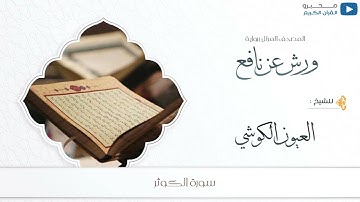 محبرو
القرآن الكريم
المصحف المرتل برواية
ورش عن نافع
للشيخ :
العيون الكوشي
سورة الكوثر